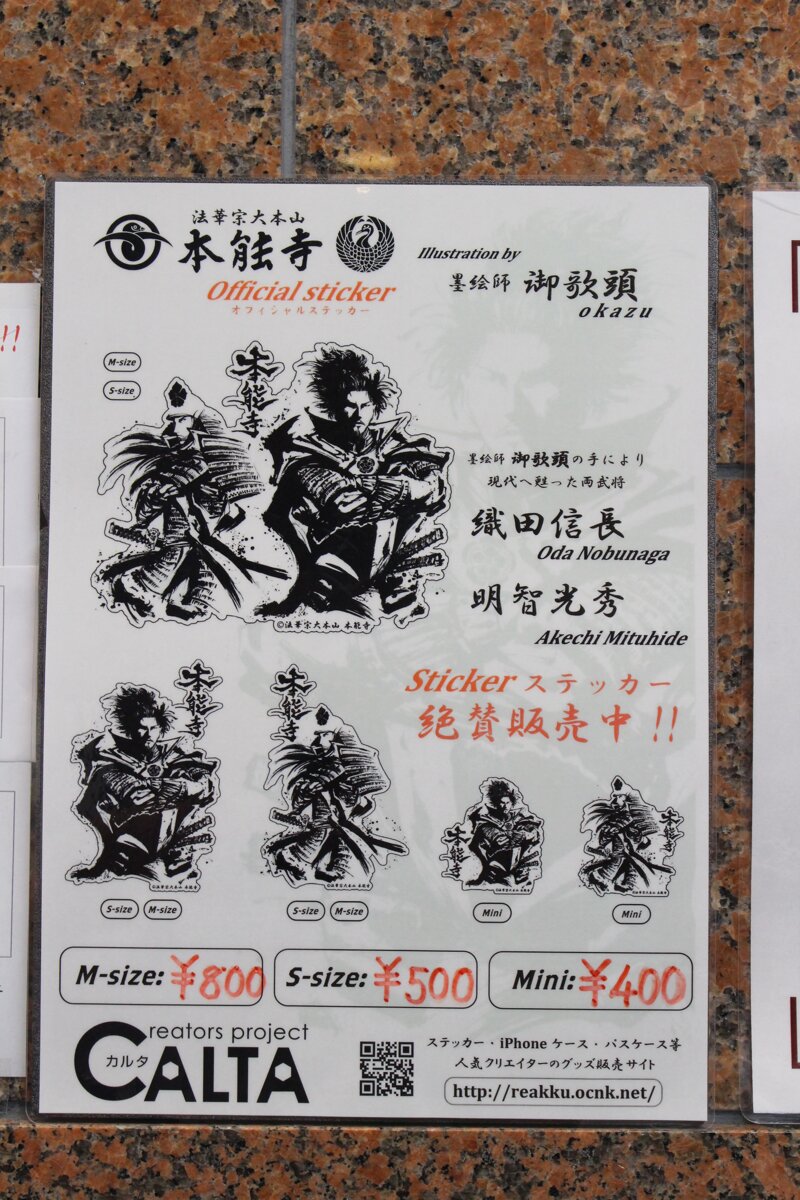 法華宗大本山
本能寺
Official sticker
オフィシャルステッカー
Illustration by
墨絵師 御歌頭
okazu
M-size
S-size
本能寺
©法華宗大本山 本能寺
墨絵師 御歌頭の手により
現代へ甦った両武将
織田信長
Oda Nobunaga
明智光秀
Akechi Mituhide
Sticker ステッカー
絶賛販売中!!
本能寺
©法華宗大本山 本能寺
S-size M-size
本能寺
©法華宗大本山 本能寺
S-size M-size
本能寺
©法華宗大本山 本能寺
Mini
本能寺
©法華宗大本山 本能寺
Mini
M-size: ¥800
S-size: ¥500
Mini: ¥400
Creators project
カルタ
CALTA
ステッカー・iPhoneケース・パスケース等
人気クリエイターのグッズ販売サイト
http://reakku.ocnk.net/
!!